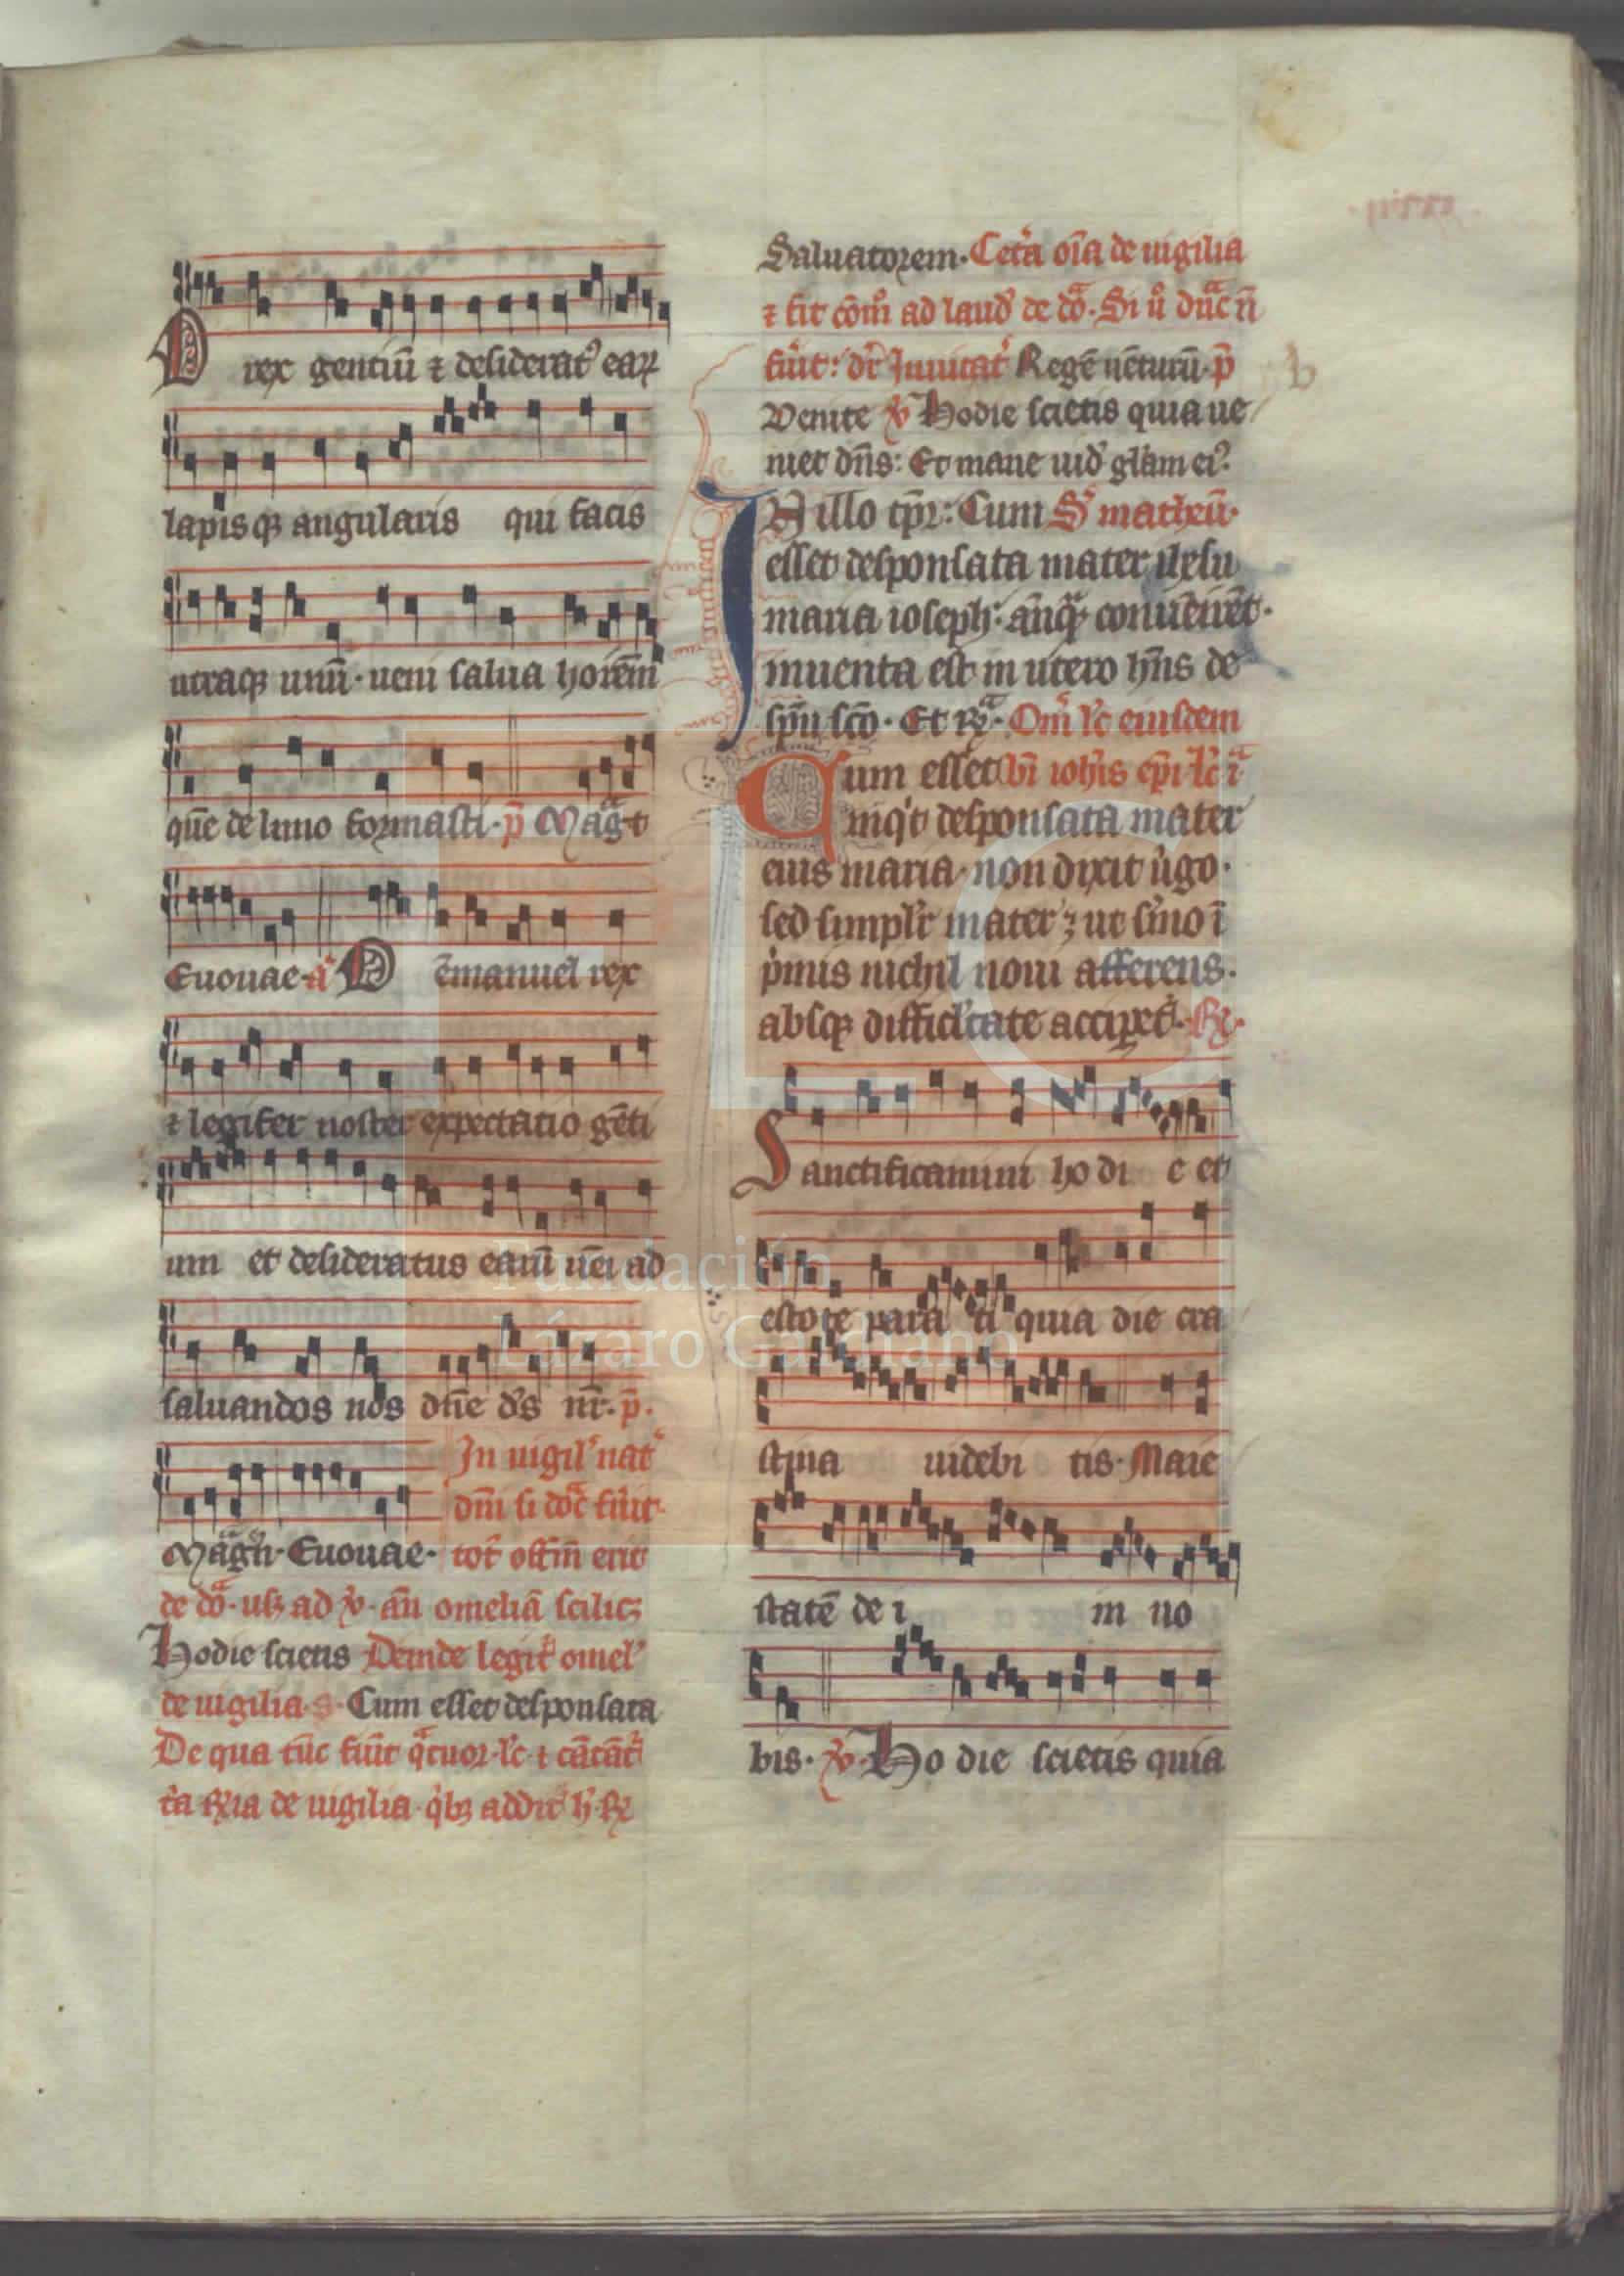 O rex gentiū ⁊ desiderat᷒ eaꝝ
lapisqꝫ angularis qui facis
utraqꝫ unū · ueni salua hoīem
quē de limo formasti · p̄ Magᷓt
Euouae · aͥ O emanuel rex
⁊ legifer noster expectatio gēti
um et desideratus earū uēi ad
saluandos nos dn̄e d̓s nr̄ · p̄ ·
In uigil᷒ nat᷒
dn̄i si doᷓc fūit ·
Magᷓn̄ · Euouae · tot̄ offīm erit
de doᷓ · usqꝫ ad ℣ · an̄ omeliā scilicꝫ
Hodie scietis Deinde legit᷒ omel᷒
de uigilia · s · Cum esset desponsata
De qua tūc fūit qᷓtuor · lc̄ · ⁊ cātāt᷒
de uigilia · qͥbꝫ addit᷒ h̓ ℟
Saluatorem · Cet̓a oīa de uigilia
⁊ fit cōm̄ ad laud᷒ de doᷓ · Si ů dn̄ᷓc n̄
fūit : dr̄ Inuitat᷒ Regē uēturū · p̄
Venite ℣ Hodie scietis quia ue
b
niet dn̄s : Et mane uid᷒ gl̄am ei᷒ ·
IN illo tp̄r : Cum S᷒ matheū ·
esset desponsata mater ihesu
maria ioseph : an̄qᷓꝫ conuēirēt ·
inuenta est in utero hn̄s de
sp̄u sc̄o · Et rᷓ · Om̄ · lc̄ eiusdem
Cum esset bī ioh̄is ep̄i · lc̄ iᷓ
inqͥt desponsata mater
eius maria · non dixit ůgo ·
sed simplr̄ mater ; ut s̓mo ī
pͥmis nichil noui afferens ·
absqꝫ difficl̄tate acciꝑet᷒ · ℟ ·
Sanctificamini ho di e et
estote para ti quia die cra
stina uidebi tis · Maie
statē de i in no
bis · ℣ · Ho die scietis quia
Fundación
Lázaro Galdiano